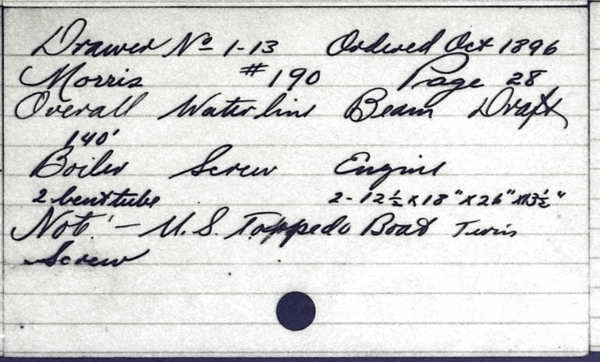 Drawer No 1-13 Ordered Oct 1896
Morris #190 Page 28
Overall Waterline Beam Draft
140'
Boiler Screw Engine
2 bent tube 2-12½ x 18" x 26" x 13½"
Not. - U.S. Torpedo Boat Twin
Screw